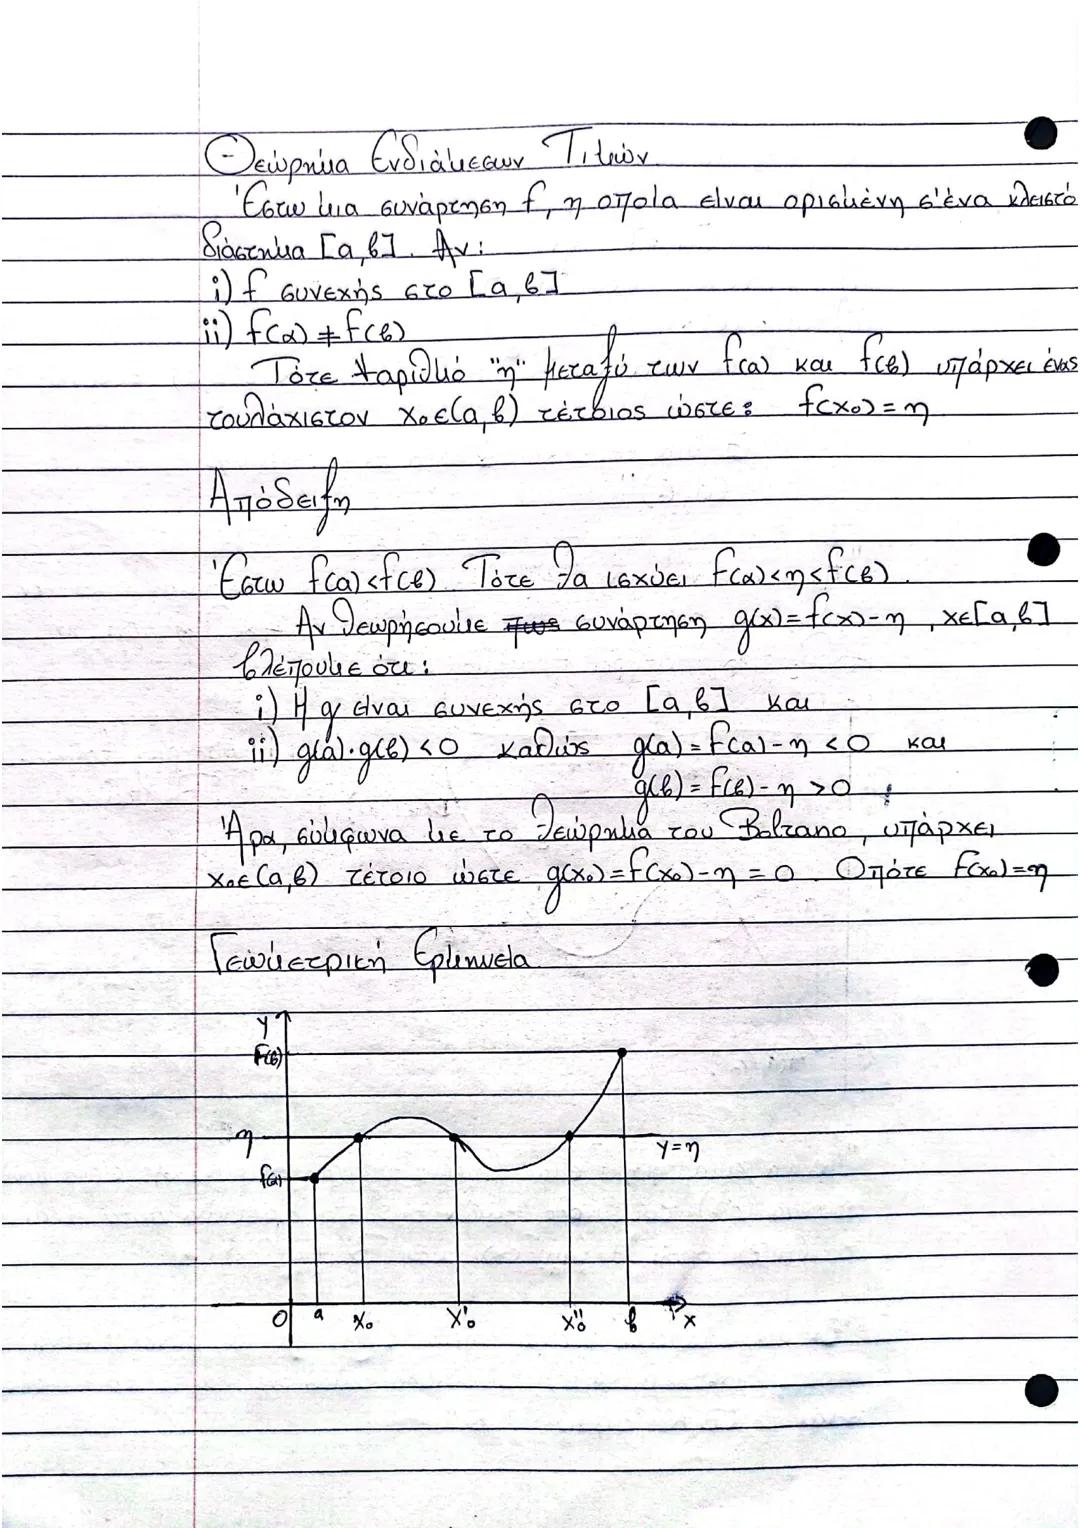 Θεώρημα Ενδιάμεσων Τιμών
Έστω μια συνάρτηση f, η οποία είναι ορισμένη σ'ένα κλειστό
διάστημα [α,β]. Αν:
i) f συνεχής στο [α,β]
ii) f(α) ≠ f(β)
Τότε ∀αριθμό "η" μεταξύ των f(α) και f(β) υπάρχει ένας
τουλάχιστον x₀∈(α,β) τέτοιος ώστε: f(x₀)=η
Απόδειξη
Έστω f(α)<f(β). Τότε θα ισχύει f(α)<η<f(β).
Αν θεωρήσουμε συνάρτηση g(x)=f(x)-η, x∈[α,β]
βλέπουμε ότι:
i) Η g είναι συνεχής στο [α,β] και
ii) g(α)·g(β)<0 καθώς g(α)=f(α)-η<0 και
g(β)=f(β)-η>0
Άρα, σύμφωνα με το θεώρημα του Bolzano, υπάρχει
x₀∈(α,β) τέτοιο ώστε g(x₀)=f(x₀)-η=0. Οπότε f(x₀)=η
Γεωμετρική Ερμηνεία
y
f(β)
η
y=η
f(α)
O α x₀ x'₀ x''₀ β x